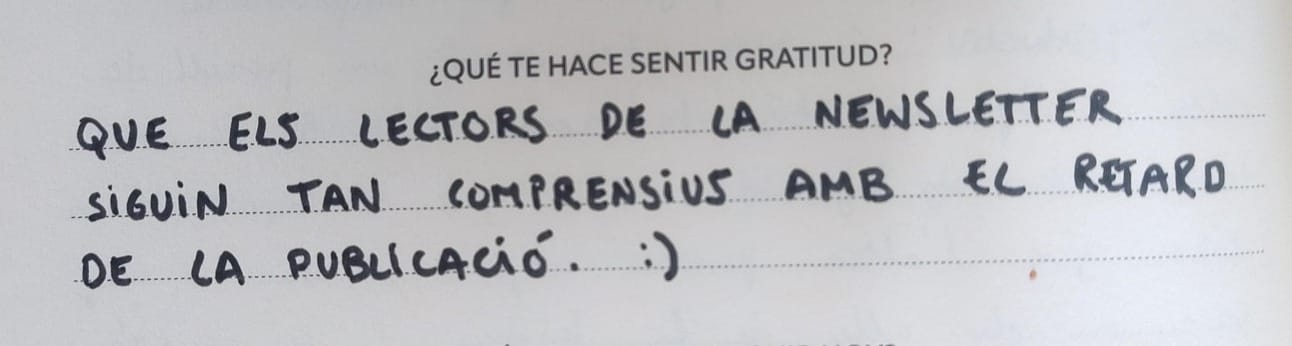 ¿QUÉ TE HACE SENTIR GRATITUD?
QUE ELS LECTORS DE LA NEWSLETTER
SIGUIN TAN COMPRENSIUS AMB EL RETARD
DE LA PUBLICACIÓ. :)